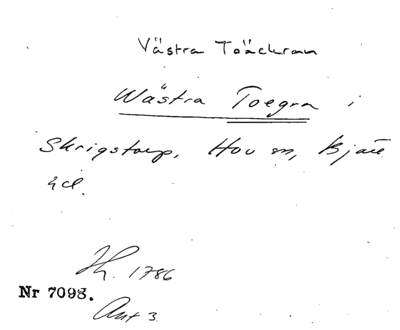 Västra Toäckran
Wästra Toegra i
Skrigstorp, Hov sn, Bjäre
hd.
Lh. 1786
Nr 7098.
Akt 3.